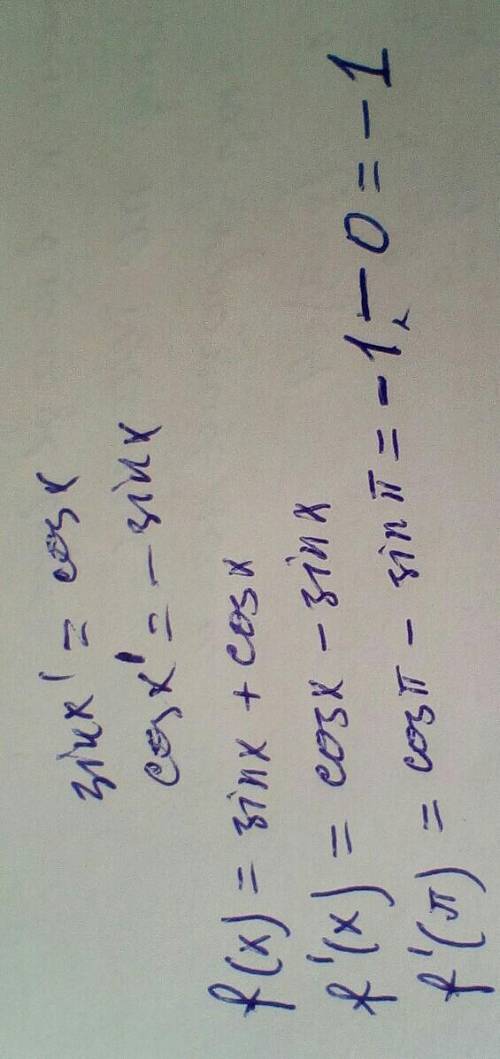 sinx' = cosx
cosx' = -sinx
f(x) = sinx + cosx
f'(x) = cosx - sinx
f'(π) = cosπ - sinπ = -1 - 0 = -1